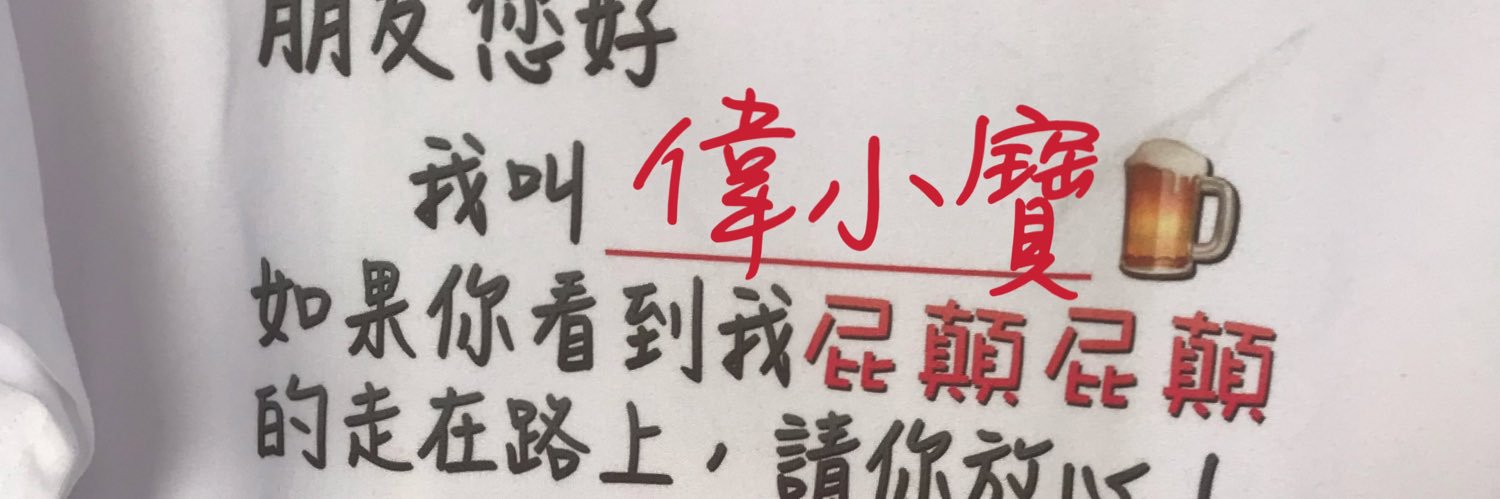 朋友您好
我叫偉小寶
如果你看到我屁顛屁顛
的走在路上，請你放心！